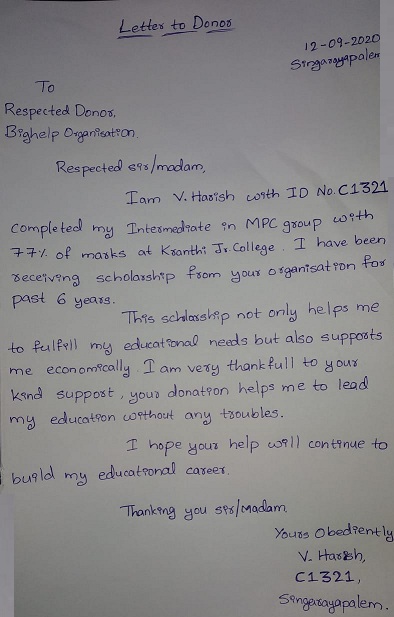 Letter to Donor
12-09-2020
Singarayapalem
To
Respected Donor,
Bighelp Organisation.
Respected sir/madam,
I am V. Harish with ID No. C1321
completed my Intermediate in MPC group with
77% of marks at Kranthi Jr. College. I have been
receiving scholarship from your organisation for
past 6 years.
This scholarship not only helps me
to fulfill my educational needs but also supports
me economically. I am very thankfull to your
kind support, your donation helps me to lead
my education without any troubles.
I hope your help will continue to
build my educational career.
Thanking you sir/Madam.
Yours Obediently
V. Harish,
C1321,
Singarayapalem.